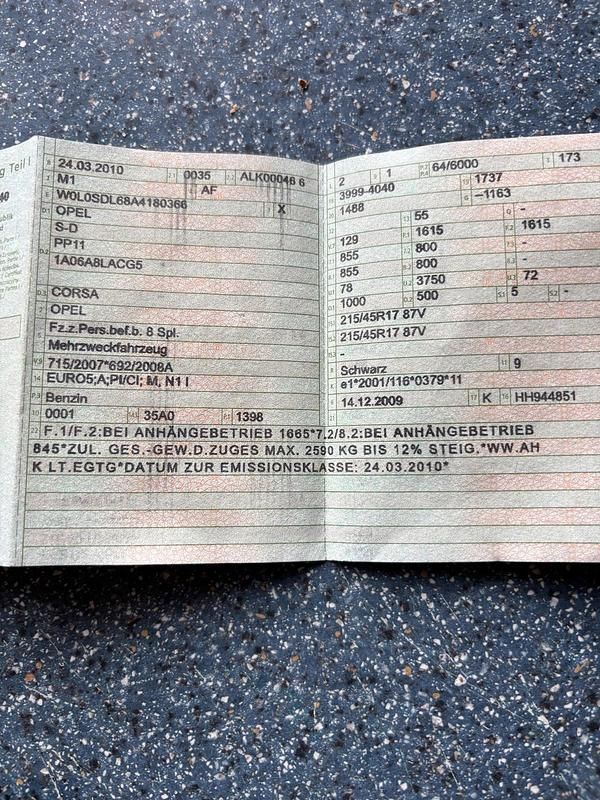 g Teil I
B 24.03.2010 2.1 0035 2.2 ALK00046 6
J M1 4 AF
E W0L0SDL68A4180366 3 X
D.1 OPEL
S-D
D.2 PP11
1A06A8LACG5
D.3 CORSA
2 OPEL
5 Fz.z.Pers.bef.b. 8 Spl.
Mehrzweckfahrzeug
V.9 715/2007*692/2008A
14 EURO5;A;PI/CI; M, N1 I
P.3 Benzin
10 0001 14.1 35A0 P.1 1398
L 2 9 1 P.2/P.4 64/6000 T 173
18 3999-4040 19 1737
20 1488 G -1163
12 - 13 55 Q -
V.7 129 F.1 1615 F.2 1615
7.1 855 7.2 800 7.3 -
8.1 855 8.2 800 8.3 -
U.1 78 U.2 3750 U.3 72
O.1 1000 O.2 500 S.1 5 S.2 -
15.1 215/45R17 87V
15.2 215/45R17 87V
15.3 -
R Schwarz 11 9
K e1*2001/116*0379*11
6 14.12.2009 17 K 16 HH944851
21
22 F.1/F.2:BEI ANHÄNGEBETRIEB 1665*7.2/8.2:BEI ANHÄNGEBETRIEB
845*ZUL. GES.-GEW.D.ZUGES MAX. 2590 KG BIS 12% STEIG.*WW.AH
K LT.EGTG*DATUM ZUR EMISSIONSKLASSE: 24.03.2010*